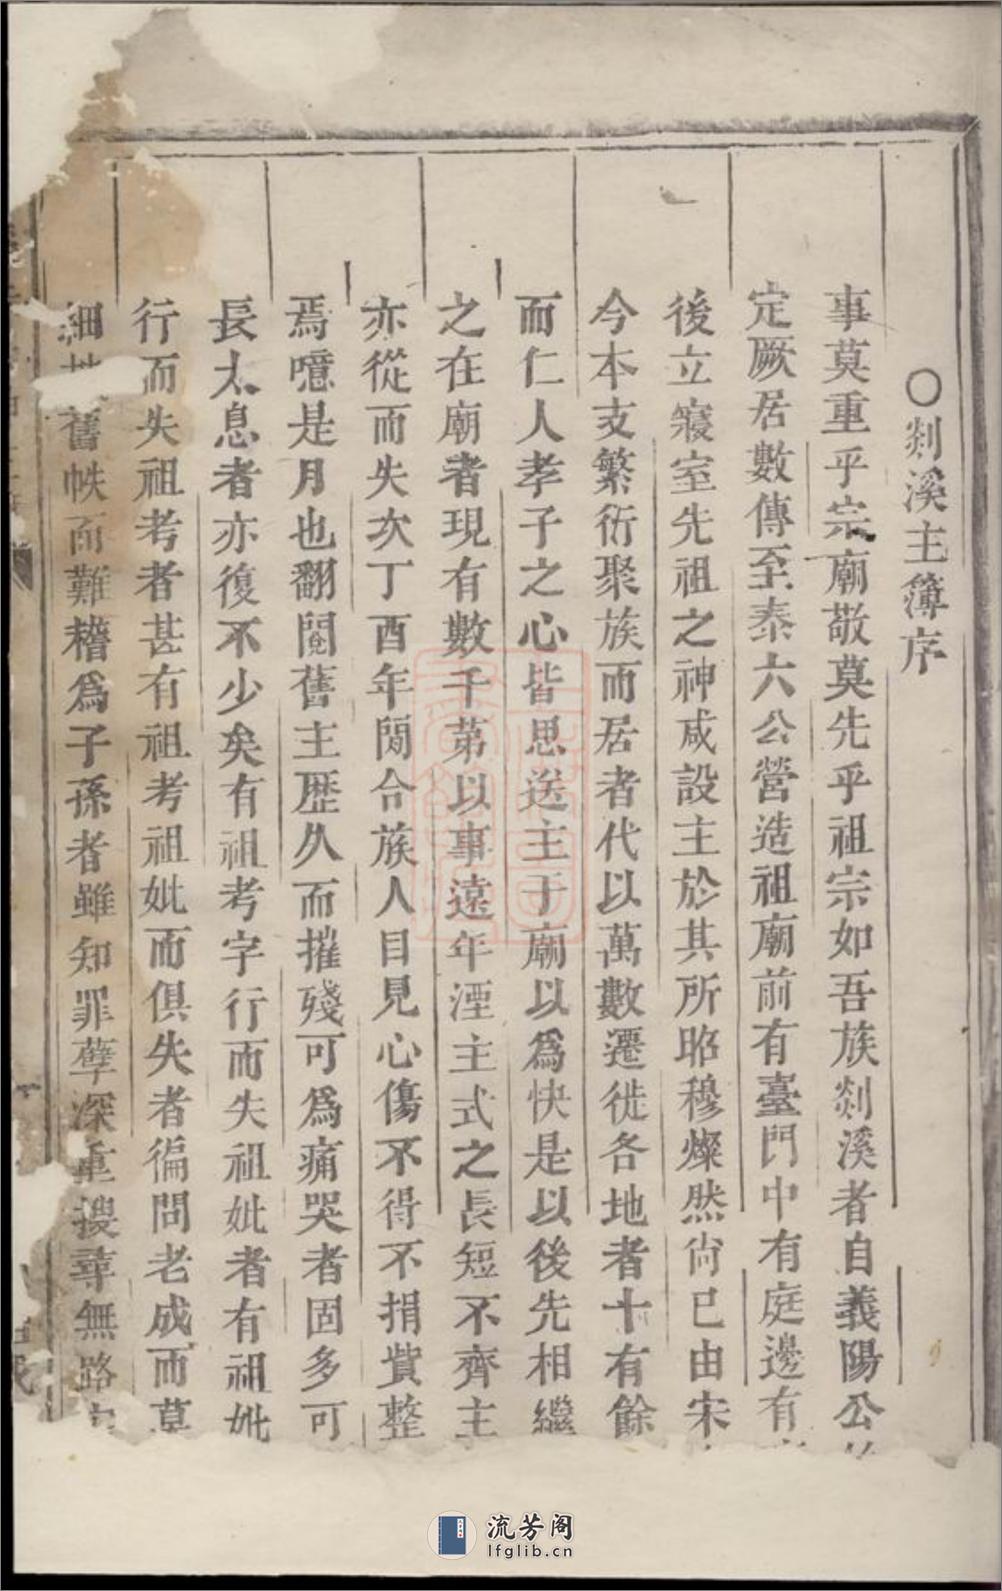 〇剡溪主簿序
事莫重乎宗廟敬莫先乎祖宗如吾族剡溪者自義陽公
定厥居數傳至泰六公營造祖廟前有臺門中有庭邊有
後立寢室先祖之神咸設主於其所昭穆燦然尙已由宋
今本支繁衍聚族而居者代以萬數遷徙各地者十有餘
而仁人孝子之心皆思送主于廟以爲快是以後先相繼
之在廟者現有數千第以事遠年湮主式之長短不齊主
亦從而失次丁酉年閒合族人目見心傷不得不捐貲整
焉噫是月也翻閱舊主歷久而摧殘可爲痛哭者固多可
長太息者亦復不少矣有祖考字行而失祖妣者有祖妣
行而失祖考者甚有祖考祖妣而俱失者徧問老成而莫
細 舊帙而難稽爲子孫者雖知罪孽深重搜尋無路
流芳阁
lfglib.cn